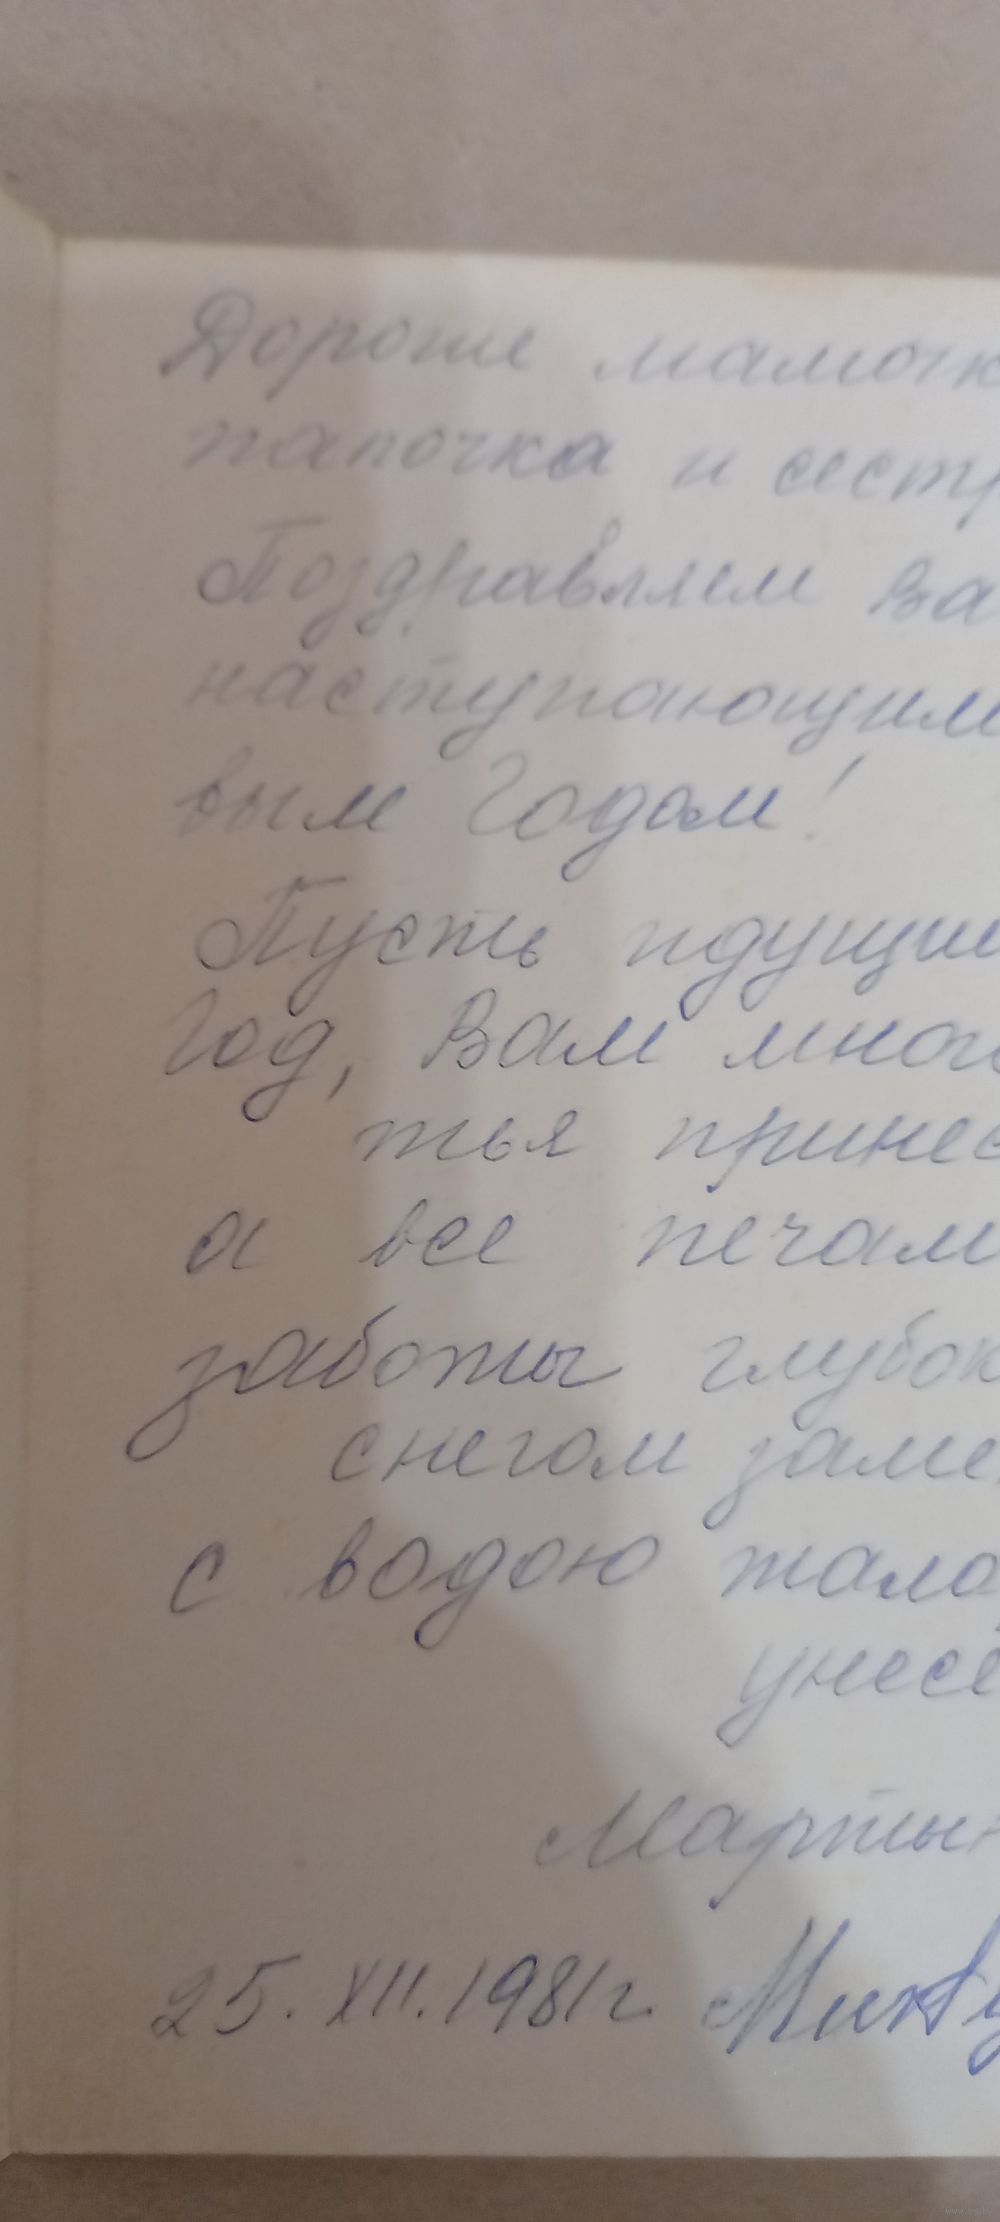 Дорогие мамочк
папочка и сестр
Поздравляем Ва
наступающим
вым Годом!
Пусть идущий
Год, Вам мног
тья принес
а все печали
заботы глубок
снегом заме
с водою тало
унесё
Мартын
25. XII. 1981г.